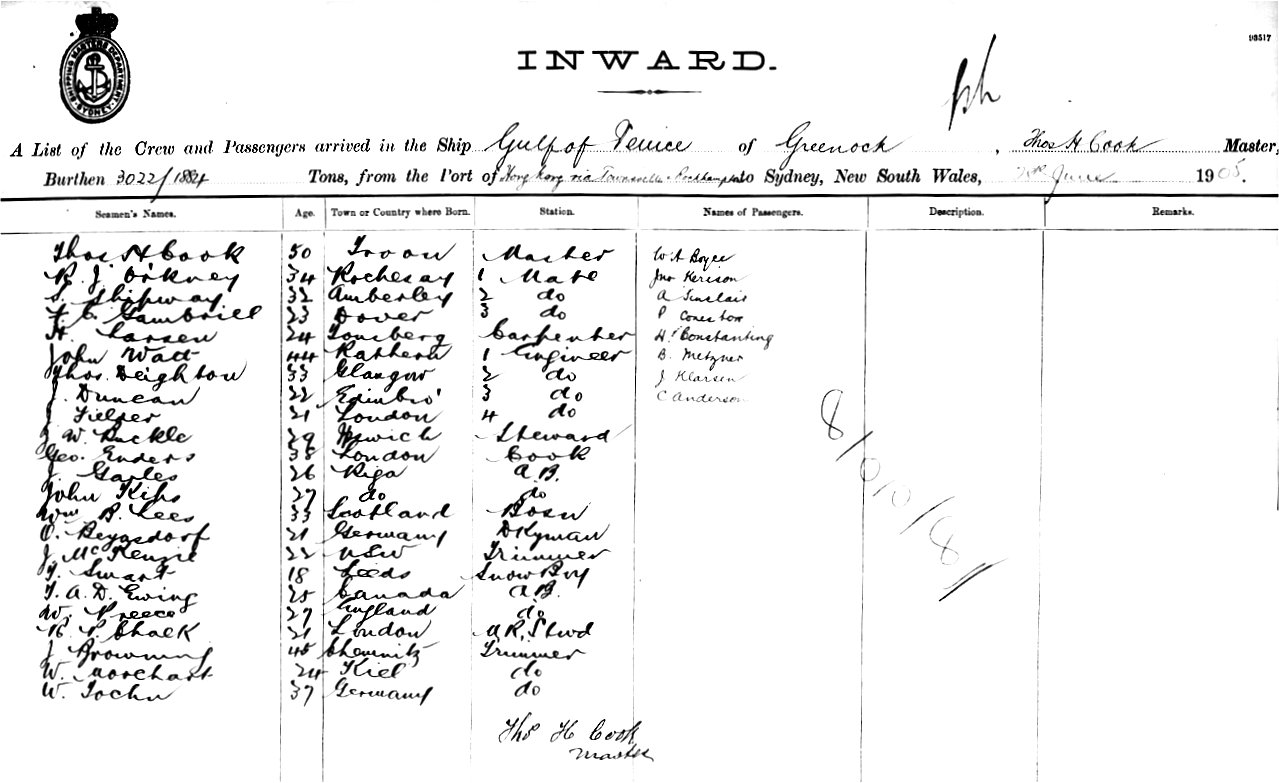 SHIPPING MASTERS DEPARTMENT SYDNEY
93517
INWARD.
A List of the Crew and Passengers arrived in the Ship Gulf of Venice of Greenock, Thos H Cook Master,
Burthen 3022/1884 Tons, from the Port of Hong Kong via Townsville & Rockhampton to Sydney, New South Wales, June 1905.
Seamen's Names. Age. Town or Country where Born. Station. Names of Passengers. Description. Remarks.
Thos H Cook 50 Troon Master W A Boyce
R. J. Orkney 34 Rothesay 1 Mate Jno Kerison
S. Shipway 32 Amberley 2 do A Sinclair
F. C. Gambrill 23 Dover 3 do P
H. Larsen 24 Tonsberg Carpenter Hy Constantine
John Watt 44 1 Engineer B. Metzner
Thos. Deighton 33 Glasgow 2 do J Klarsen
J. Duncan 22 Edinbro' 3 do C Anderson
J. Fielder 21 London 4 do
J. W. Buckle 29 Ipswich Steward
Geo. Enders 38 London Cook
J. 26 Riga A.B.
John Kihs 27 do do
Wm B. Lees 33 Scotland Bosn
O. Beygsdorf 21 Germany Dkyman
J McKenzie 22 NSW Trimmer
T. Smart 18 Leeds
T. A. D. Ewing 25 Canada A.B.
W. Preece 27 England do
R. P. Chalk 21 London Stwd
J Browning 45 Chemnitz Trimmer
W. 24 Kiel do
W. Jochn 37 Germany do
Thos H Cook
Master